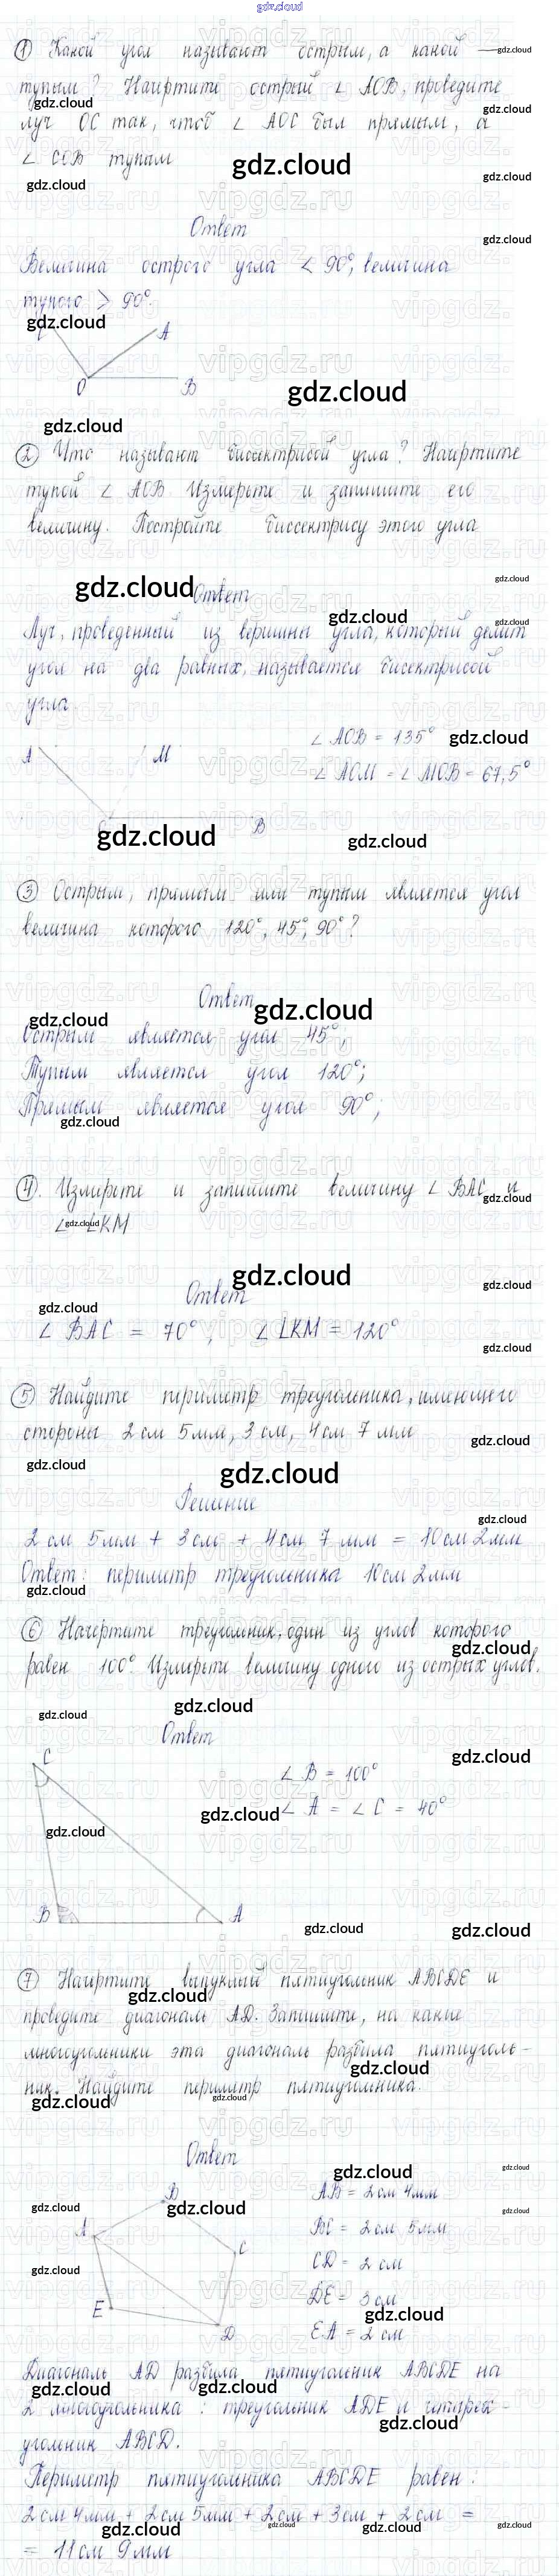 gdz.cloud
① Какой угол называют острым, а какой —
тупым? Начертите острый ∠ AOB, проведите
луч OC так, чтоб ∠ AOC был прямым, а
∠ COB тупым
Ответ
Величина острого угла < 90°, величина
тупого > 90°.
A
O B
② Что называют биссектрисой угла? Начертите
тупой ∠ AOB. Измерьте и запишите его
величину. Постройте биссектрису этого угла
Ответ
Луч, проведенный из вершины угла, который делит
угол на два равных, называется бисектрисой
угла.
∠ AOB = 135°
A M
∠ AOM = ∠ MOB = 67,5°
B
③ Острым, прямым или тупым является угол
величина которого 120°, 45°, 90°?
Ответ
Острым является угол 45°;
Тупым является угол 120°;
Прямым является угол 90°;
④. Измерьте и запишите величину ∠ BAC и
∠ LKM
Ответ
∠ BAC = 70°, ∠ LKM = 120°
⑤ Найдите периметр треугольника, имеющего
стороны 2 см 5 мм, 3 см, 4 см 7 мм
Решение
2 см 5 мм + 3 см + 4 см 7 мм = 10 см 2 мм
Ответ: периметр треугольника 10 см 2 мм
⑥ Начертите треугольник, один из углов которого
равен 100°. Измерьте величину одного из острых углов.
Ответ
C
∠ B = 100°
∠ A = ∠ C = 40°
B A
⑦ Начертите выпуклый пятиугольник ABCDE и
проведите диагональ AD. Запишите, на какие
многоугольники эта диагональ разбила пятиуголь-
ник. Найдите периметр пятиугольника.
Ответ
B
AB = 2 см 4 мм
A
BC = 2 см 5 мм
C
CD = 2 см
DE = 3 см
E
D
EA = 2 см
Диагональ AD разбила пятиугольник ABCDE на
2 многоугольника: треугольник ADE и четырех-
угольник ABCD.
Периметр пятиугольника ABCDE равен:
2 см 4 мм + 2 см 5 мм + 2 см + 3 см + 2 см =
= 11 см 9 мм